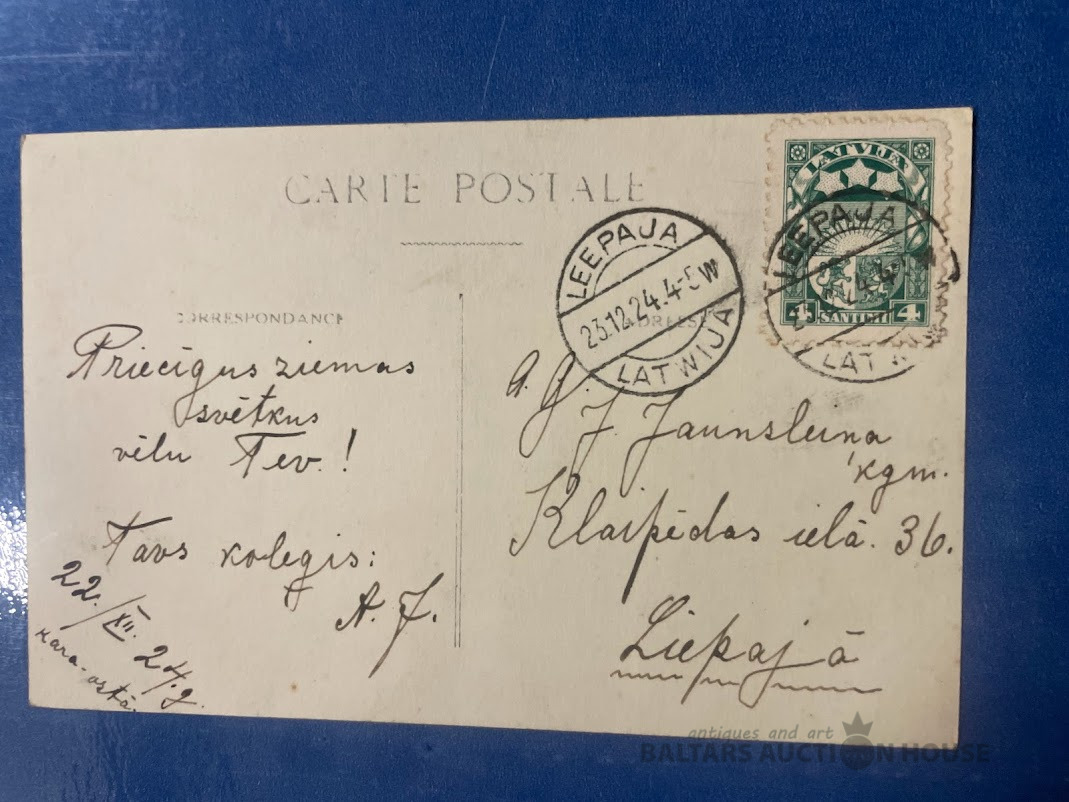 CARTE POSTALE
CORRESPONDANCE
Priecīgus ziemas
svētkus
vēlu Tev!
Tavs kolēgis:
A. J.
22./XII. 24. g.
Kara-ostā.
LATVIJA
4 SANTIMI 4
LEEPAJA
23.12.24.4-5 W
LATWIJA
LEEPAJA
ADRESSE
A. G.
J. Jaunsleiņa
kgm.
Klaipēdas ielā. 36.
Liepajā
antiques and art
BALTARS AUCTION HOUSE